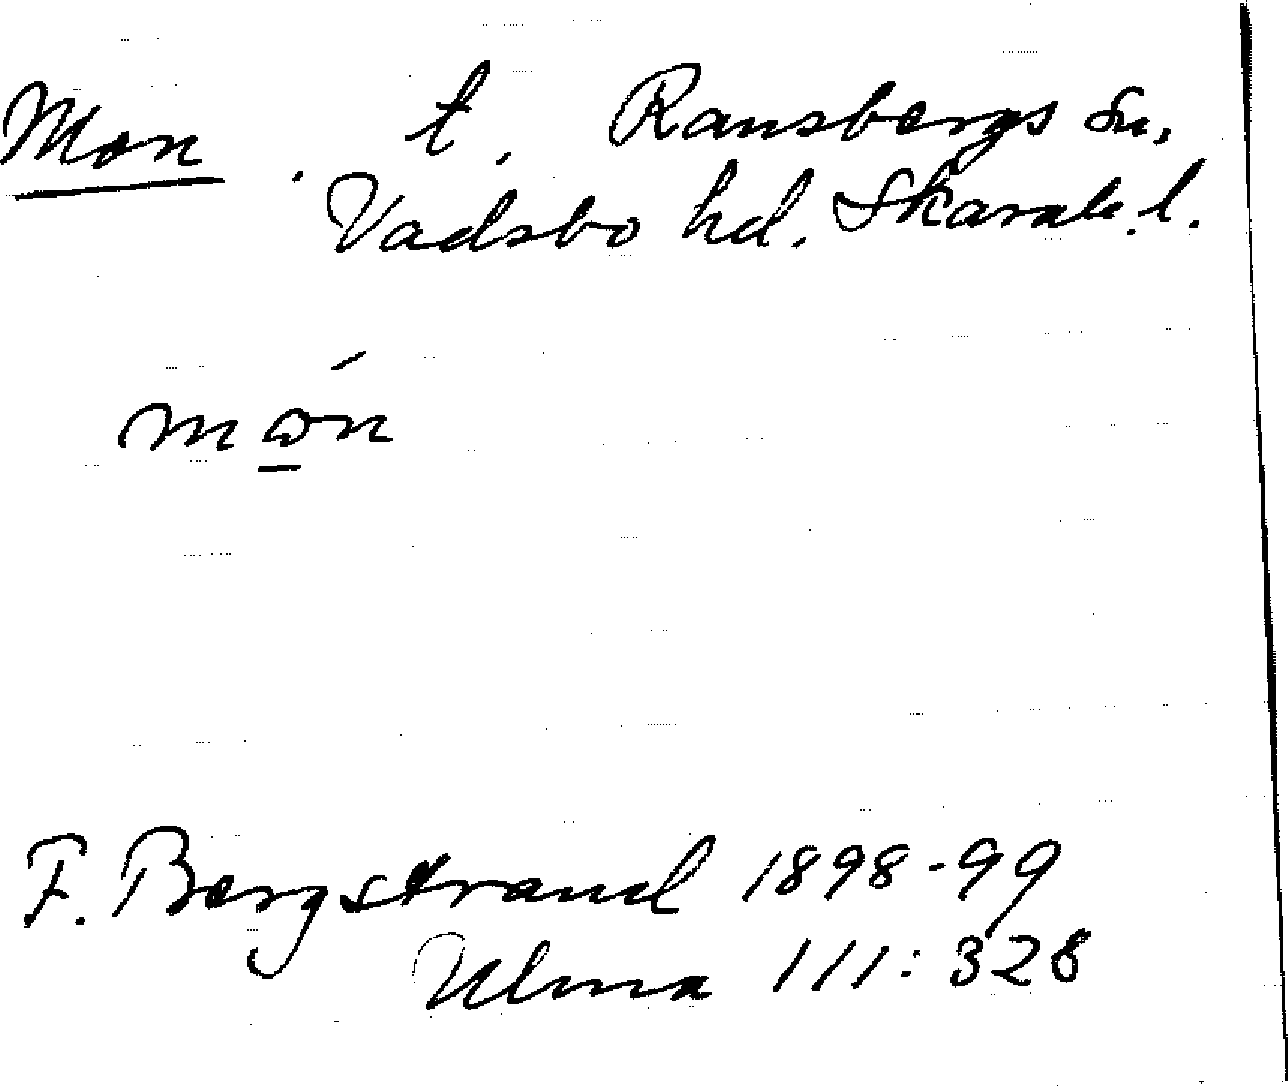 Mon. t. Ransbergs sn,
Vadsbo hd. Skarab.l.
mo̲n
F. Bergstrand 1898-99
Ulma 111:328